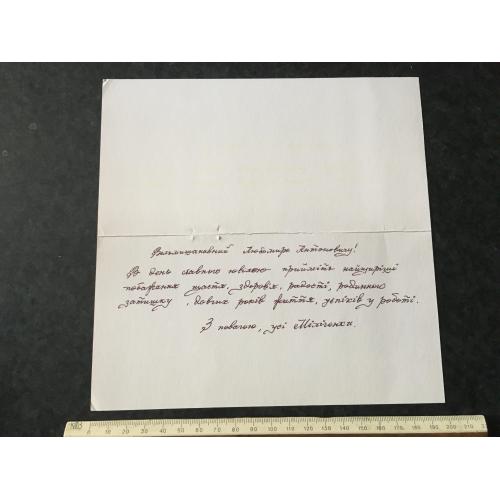 Вельмишановний Любомире Антоновичу!
В день славного ювілею прийміть найщиріші
побажання щастя, здоров'я, радості, родинного
затишку, довгих років життя, успіхів у роботі.
З повагою, усі
0 10 20 30 40 50 60 70 80 90 100 110 120 130 140 150 160 170 180 190 200 210